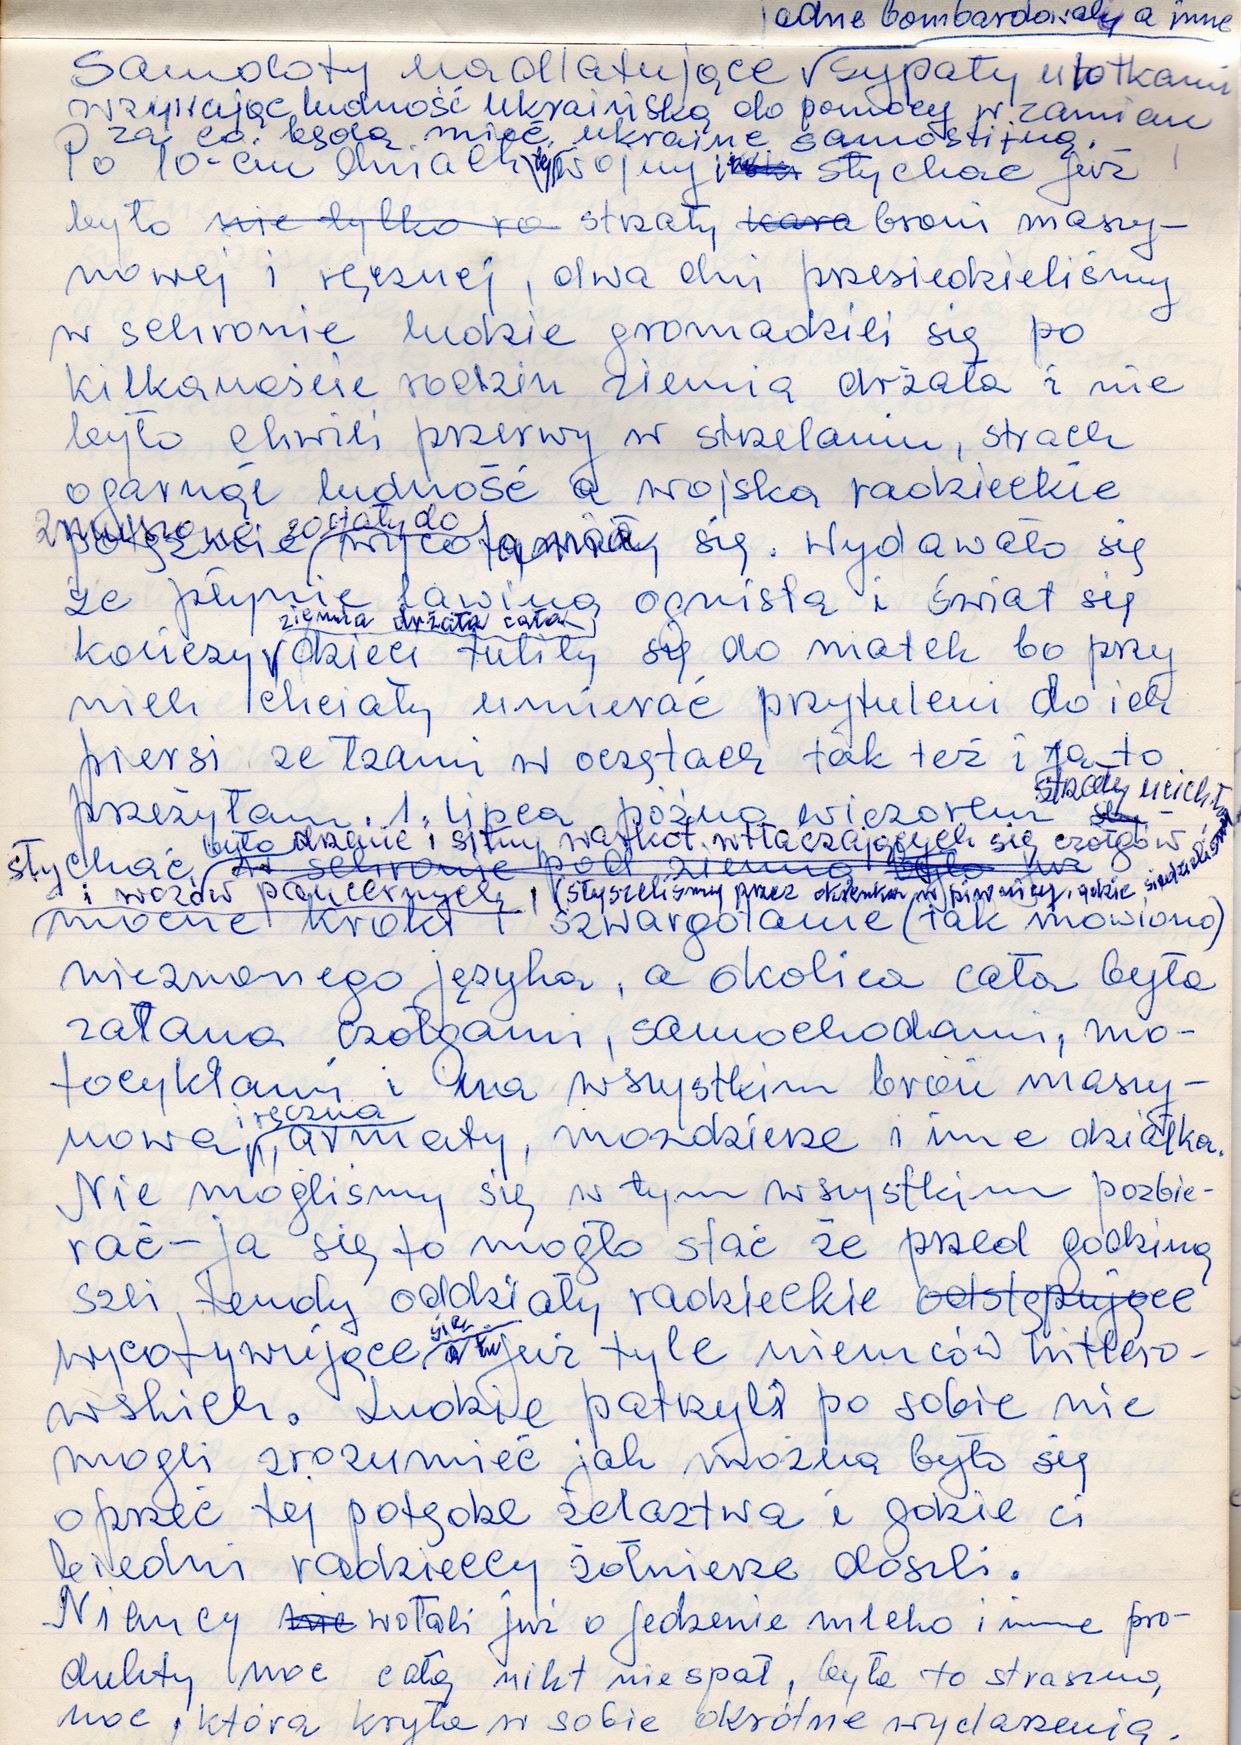 jedne bombardowały a inne
Samoloty nadlatujące sypały ulotkami
wzywając ludność ukraińską do pomocy w zamian
za co będą mieć ukrainę samostijną.
Po 10-ciu dniach wojny i słychać już
było nie tylko strzały broni maszy-
nowej i ręcznej, dwa dni przesiedzieliśmy
w schronie ludzie gromadzili się po
kilkanaście rodzin ziemia drżała i nie
było chwili przerwy w strzelaniu, strach
ogarnął ludność a wojska radzieckie
zmuszone zostały do
wycofania się. Wydawało się
że płynie lawina ognista i świat się
ziemia drżała cała
kończy dzieci tuliły się do matek bo przy
nich chciały umierać przytuleni do ich
piersi ze łzami w oczętach tak też i ja to
przeżyłam. 1. lipca późno wieczorem
strzały ucichły
było drżenie i silny warkot wtłaczających się czołgów
słychać w schronie pod ziemią było już
i wozów pancernych, słyszeliśmy przez okienka w piwnicy, gdzie siedzieliśmy
mocne kroki i szwargotanie (tak mówiono)
nieznanego języka, a okolica cała była
zalana czołgami, samochodami, mo-
tocyklami i na wszystkim broń maszy-
i ręczna
nowa, armaty, moździerze i inne działka.
Nie mogliśmy się w tym wszystkim pozbie-
rać - ja się to mogło stać że przed godziną
szli tendy oddziały radzieckie odstępujące
się a tu
wycofywujące już tyle niemców hitlero-
wskich. Ludzie patrzyli po sobie nie
mogli zrozumieć jak można było się
oprzeć tej potędze żelaztwa i gdzie ci
biedni radzieccy żołnierze doszli.
Niemcy nie wołali już o jedzenie mleko i inne pro-
dukty noc całą nikt nie spał, była to straszna
noc, która kryła w sobie okrótne wydarzenia.